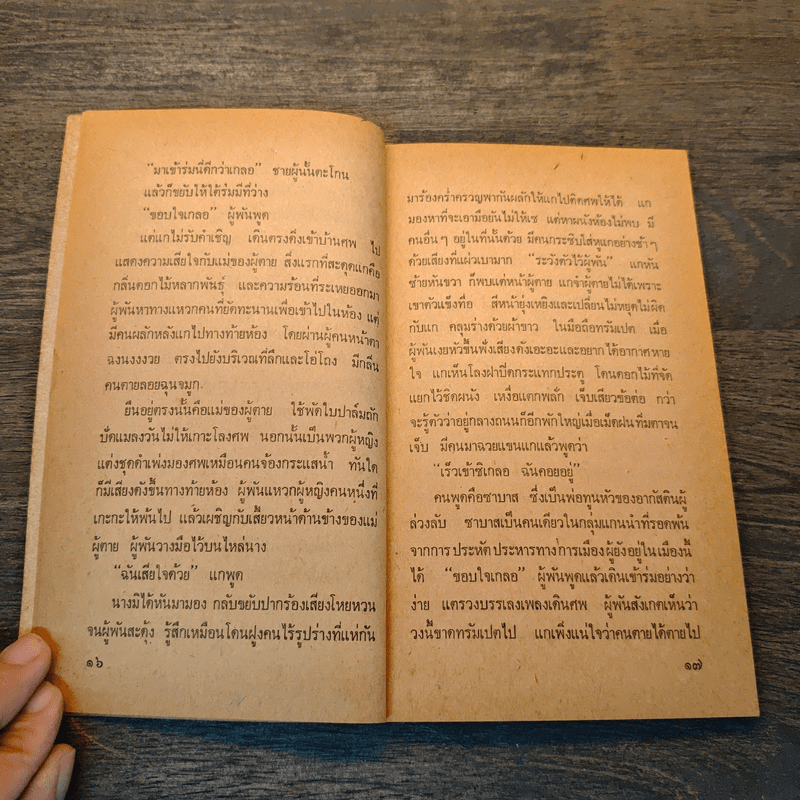 "มาเข้าร่มนี่ดีกว่าเกลอ" ชายผู้นั้นตะโกน
แล้วก็ขยับให้ใต้ร่มมีที่ว่าง
"ขอบใจเกลอ" ผู้พันพูด
แต่แกไม่รับคำเชิญ เดินตรงดิ่งเข้าบ้านศพ ไป
แสดงความเสียใจกับแม่ของผู้ตาย สิ่งแรกที่สะดุดแกคือ
กลิ่นดอกไม้หลากพันธุ์ และความร้อนที่ระเหยออกมา
ผู้พันหาทางแหวกคนที่ยัดทะนานเพื่อเข้าไปในห้อง แต่
มีคนผลักหลังแกไปทางท้ายห้อง โดยผ่านผู้คนหน้าตา
ฉงนงงงวย ตรงไปยังบริเวณที่ลึกและโอ่โถง มีกลิ่น
คนตายลอยฉุนจมูก
ยืนอยู่ตรงนั้นคือแม่ของผู้ตาย ใช้พัดใบปาล์มถัก
ปัดแมลงวันไม่ให้เกาะโลงศพ นอกนั้นเป็นพวกผู้หญิง
แต่งชุดดำเพ่งมองศพเหมือนคนจ้องกระแสน้ำ ทันใด
ก็มีเสียงดังขึ้นทางท้ายห้อง ผู้พันแหวกผู้หญิงคนหนึ่งที่
เกะกะให้พ้นไป แล้วเผชิญกับเสี้ยวหน้าด้านข้างของแม่
ผู้ตาย ผู้พันวางมือไว้บนไหล่นาง
"ฉันเสียใจด้วย" แกพูด
นางมิได้หันมามอง กลับขยับปากร้องเสียงโหยหวน
จนผู้พันสะดุ้ง รู้สึกเหมือนโดนฝูงคนไร้รูปร่างที่แห่กัน
๑๖
มาร้องคร่ำครวญพากันผลักให้แกไปติดศพให้ได้ แก
มองหาที่จะเอามือยันไม่ให้เซ แต่หาผนังห้องไม่พบ มี
คนอื่นๆ อยู่ในที่นั้นด้วย มีคนกระซิบใส่หูแกอย่างช้าๆ
ด้วยเสียงที่แผ่วเบามาก "ระวังตัวไว้ผู้พัน" แกหัน
ซ้ายหันขวา ก็พบแต่หน้าผู้ตาย แกจำผู้ตายไม่ได้เพราะ
เขาตัวแข็งทื่อ สีหน้ายุ่งเหยิงและเปลี่ยนไม่หยุดไม่ผิด
กับแก คลุมร่างด้วยผ้าขาว ในมือถือทรัมเปต เมื่อ
ผู้พันเงยหัวขึ้นฟังเสียงดังเอะอะและอยากได้อากาศหาย
ใจ แกเห็นโลงฝาปิดกระแทกประตู โดนดอกไม้ที่จัด
แยกไว้ชิดผนัง เหงื่อแตกพลั่ก เจ็บเสียวข้อต่อ กว่า
จะรู้ตัวว่าอยู่กลางถนนก็อีกพักใหญ่เมื่อเม็ดฝนทิ่มตาจน
เจ็บ มีคนมาฉวยแขนแกแล้วพูดว่า
"เร็วเข้าซิเกลอ ฉันคอยอยู่"
คนพูดคือซาบาส ซึ่งเป็นพ่อทูนหัวของอากัสตินผู้
ล่วงลับ ซาบาสเป็นคนเดียวในกลุ่มแกนนำที่รอดพ้น
จากการ ประหัต ประหารทาง การเมืองผู้ยังอยู่ในเมืองนี้
ได้ "ขอบใจเกลอ" ผู้พันพูดแล้วเดินเข้าร่มอย่างว่า
ง่าย แตรวงบรรเลงเพลงเดินศพ ผู้พันสังเกตเห็นว่า
วงนี้ขาดทรัมเปตไป แกเพิ่งแน่ใจว่าคนตายได้ตายไป
๑๗